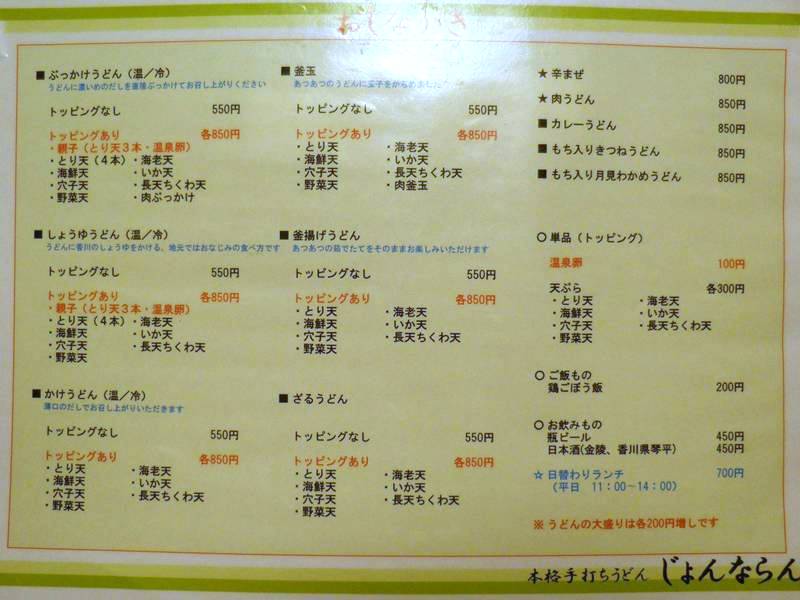 おしながき
■ ぶっかけうどん（温／冷）
うどんに濃いめのだしを直接ぶっかけてお召し上がりください
トッピングなし 550円
トッピングあり 各850円
・親子（とり天３本・温泉卵）
・とり天（４本）・海老天
・海鮮天 ・いか天
・穴子天 ・長天ちくわ天
・野菜天 ・肉ぶっかけ
■ しょうゆうどん（温／冷）
うどんに香川のしょうゆをかける、地元ではおなじみの食べ方です
トッピングなし 550円
トッピングあり 各850円
・親子（とり天３本・温泉卵）
・とり天（４本）・海老天
・海鮮天 ・いか天
・穴子天 ・長天ちくわ天
・野菜天
■ かけうどん（温／冷）
薄口のだしでお召し上がりいただきます
トッピングなし 550円
トッピングあり 各850円
・とり天 ・海老天
・海鮮天 ・いか天
・穴子天 ・長天ちくわ天
・野菜天
■ 釜玉
あつあつのうどんに玉子をからめました
トッピングなし 550円
トッピングあり 各850円
・とり天 ・海老天
・海鮮天 ・いか天
・穴子天 ・長天ちくわ天
・野菜天 ・肉釜玉
■ 釜揚げうどん
あつあつの茹でたてをそのままお楽しみいただけます
トッピングなし 550円
トッピングあり 各850円
・とり天 ・海老天
・海鮮天 ・いか天
・穴子天 ・長天ちくわ天
・野菜天
■ ざるうどん
トッピングなし 550円
トッピングあり 各850円
・とり天 ・海老天
・海鮮天 ・いか天
・穴子天 ・長天ちくわ天
・野菜天
★ 辛まぜ 800円
★ 肉うどん 850円
■ カレーうどん 850円
■ もち入りきつねうどん 850円
■ もち入り月見わかめうどん 850円
○ 単品（トッピング）
温泉卵 100円
天ぷら 各300円
・とり天 ・海老天
・海鮮天 ・いか天
・穴子天 ・長天ちくわ天
・野菜天
○ ご飯もの
鶏ごぼう飯 200円
○ お飲みもの
瓶ビール 450円
日本酒(金陵、香川県琴平) 450円
☆ 日替わりランチ 700円
（平日 11：00～14：00）
※ うどんの大盛りは各200円増しです
本格手打ちうどん じょんならん